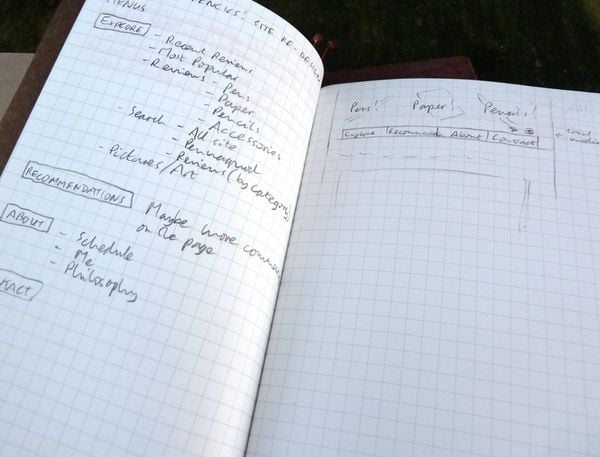 MENUS
PENCILS! SITE RE-DESIGN
EXPLORE
- Recent Reviews
- Most Popular
- Reviews - Pens
- Paper
- Pencils
- Accessories
- Search - All site
- Pennaquod
- Reviews (by category)
- Pictures/Art
RECOMMENDATIONS
Maybe move comments
on the page
ABOUT
- Schedule
- Me
- Philosophy
Pens! Paper! Pencils!
Explore Recommend About Contact
social
media